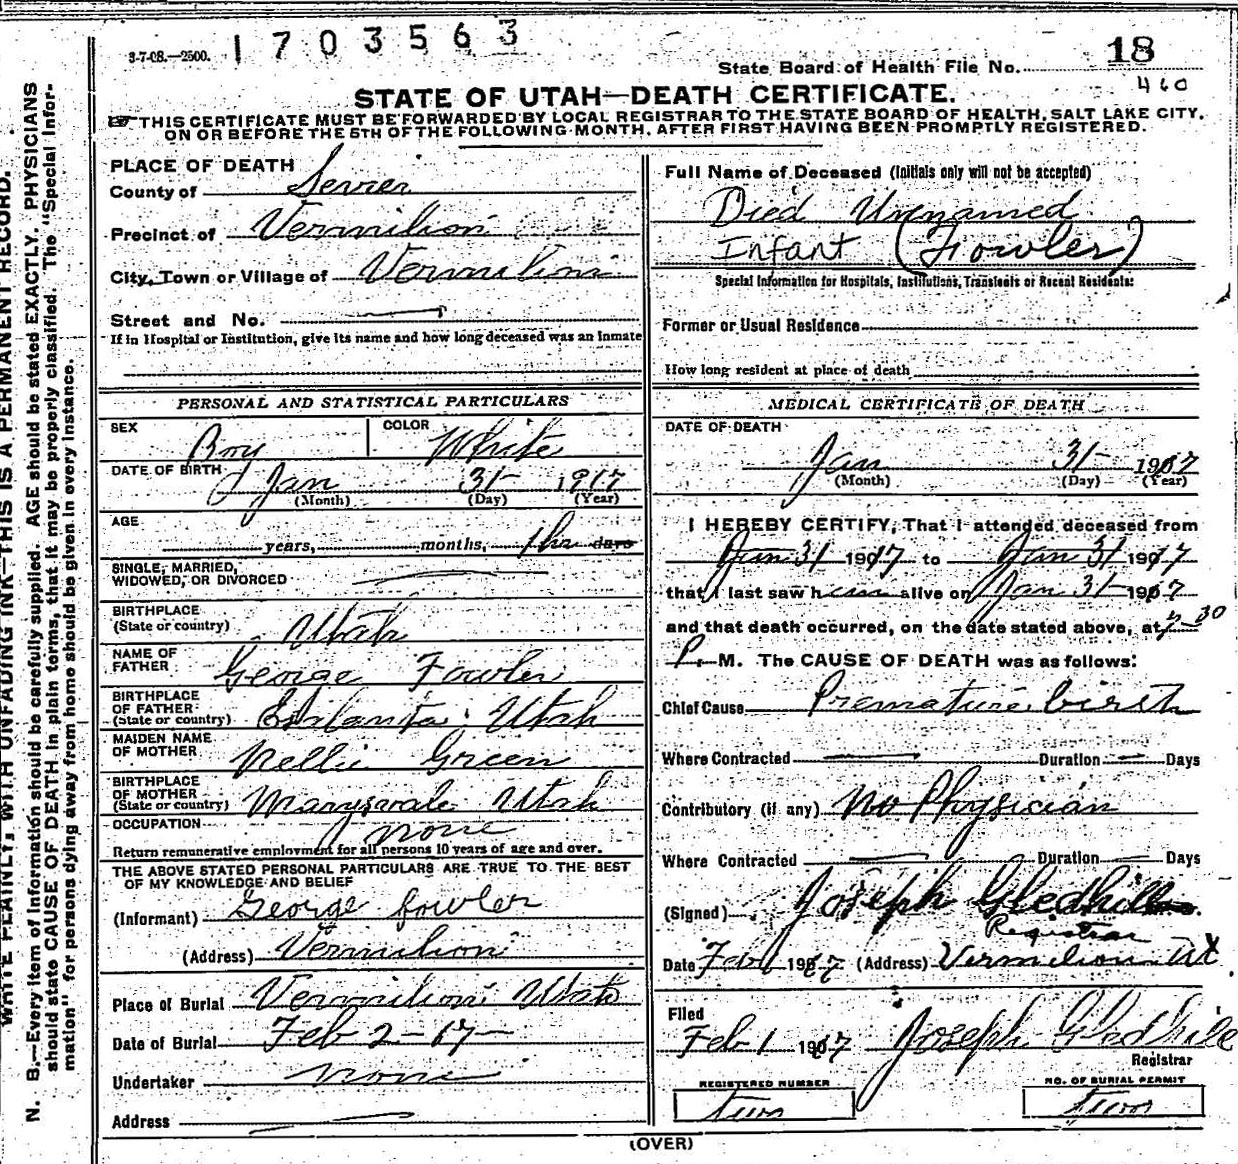 3-7-08.—2500. 1703563
State Board of Health File No. 18
460
STATE OF UTAH—DEATH CERTIFICATE.
☞THIS CERTIFICATE MUST BE FORWARDED BY LOCAL REGISTRAR TO THE STATE BOARD OF HEALTH, SALT LAKE CITY,
ON OR BEFORE THE 5TH OF THE FOLLOWING MONTH, AFTER FIRST HAVING BEEN PROMPTLY REGISTERED.
PLACE OF DEATH
County of Sevier
Precinct of Vermilion
City, Town or Village of Vermilion
Street and No.
If in Hospital or Institution, give its name and how long deceased was an inmate
PERSONAL AND STATISTICAL PARTICULARS
SEX Boy COLOR White
DATE OF BIRTH Jan 31 1917
(Month) (Day) (Year)
AGE
years, months, 1 hr days
SINGLE, MARRIED,
WIDOWED, OR DIVORCED
BIRTHPLACE
(State or country) Utah
NAME OF
FATHER George Fowler
BIRTHPLACE
OF FATHER
(State or country) Utah
MAIDEN NAME
OF MOTHER Nellie Green
BIRTHPLACE
OF MOTHER
(State or country) Marysvale Utah
OCCUPATION none
Return remunerative employment for all persons 10 years of age and over.
THE ABOVE STATED PERSONAL PARTICULARS ARE TRUE TO THE BEST
OF MY KNOWLEDGE AND BELIEF
(Informant) George Fowler
(Address) Vermilion
Place of Burial Vermilion Utah
Date of Burial Feb 2-17
Undertaker none
Address
Full Name of Deceased (Initials only will not be accepted)
Died Unnamed
Infant (Fowler)
Special Information for Hospitals, Institutions, Transients or Recent Residents:
Former or Usual Residence
How long resident at place of death
MEDICAL CERTIFICATE OF DEATH
DATE OF DEATH
Jan 31 1917
(Month) (Day) (Year)
I HEREBY CERTIFY, That I attended deceased from
Jan 31 1917 to Jan 31 1917
that I last saw him alive on Jan 31 1917
and that death occurred, on the date stated above, at 7-30
P. M. The CAUSE OF DEATH was as follows:
Chief Cause Premature birth
Where Contracted Duration Days
Contributory (if any) No Physician
Where Contracted Duration Days
(Signed) Joseph Gledhill
Registrar
Date Feb 1 1917 (Address) Vermilion Ut
Filed
Feb 1 1917 Joseph Gledhill
Registrar
REGISTERED NUMBER
two
NO. OF BURIAL PERMIT
two
(OVER)
WRITE PLAINLY, WITH UNFADING INK—THIS IS A PERMANENT RECORD.
N. B.—Every item of information should be carefully supplied. AGE should be stated EXACTLY. PHYSICIANS
should state CAUSE OF DEATH in plain terms, that it may be properly classified. The "Special Infor-
mation" for persons dying away from home should be given in every instance.